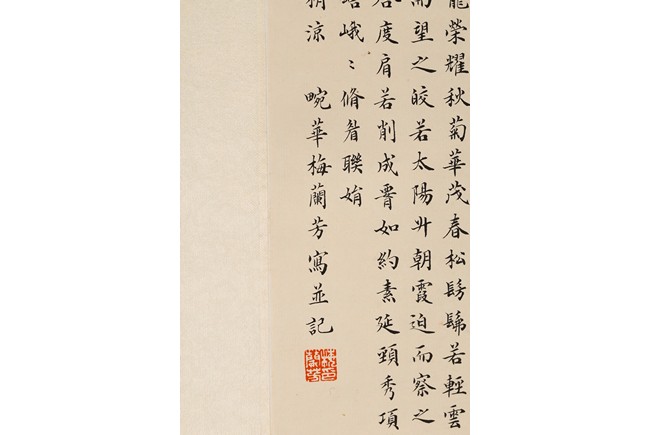 龍榮耀秋菊華茂春松髣髴若輕雲
而望之皎若太陽升朝霞迫而察之
度肩若削成腰如約素延頸秀項
峨〻脩眉聯娟
涼 畹華梅蘭芳寫並記
梅印蘭芳